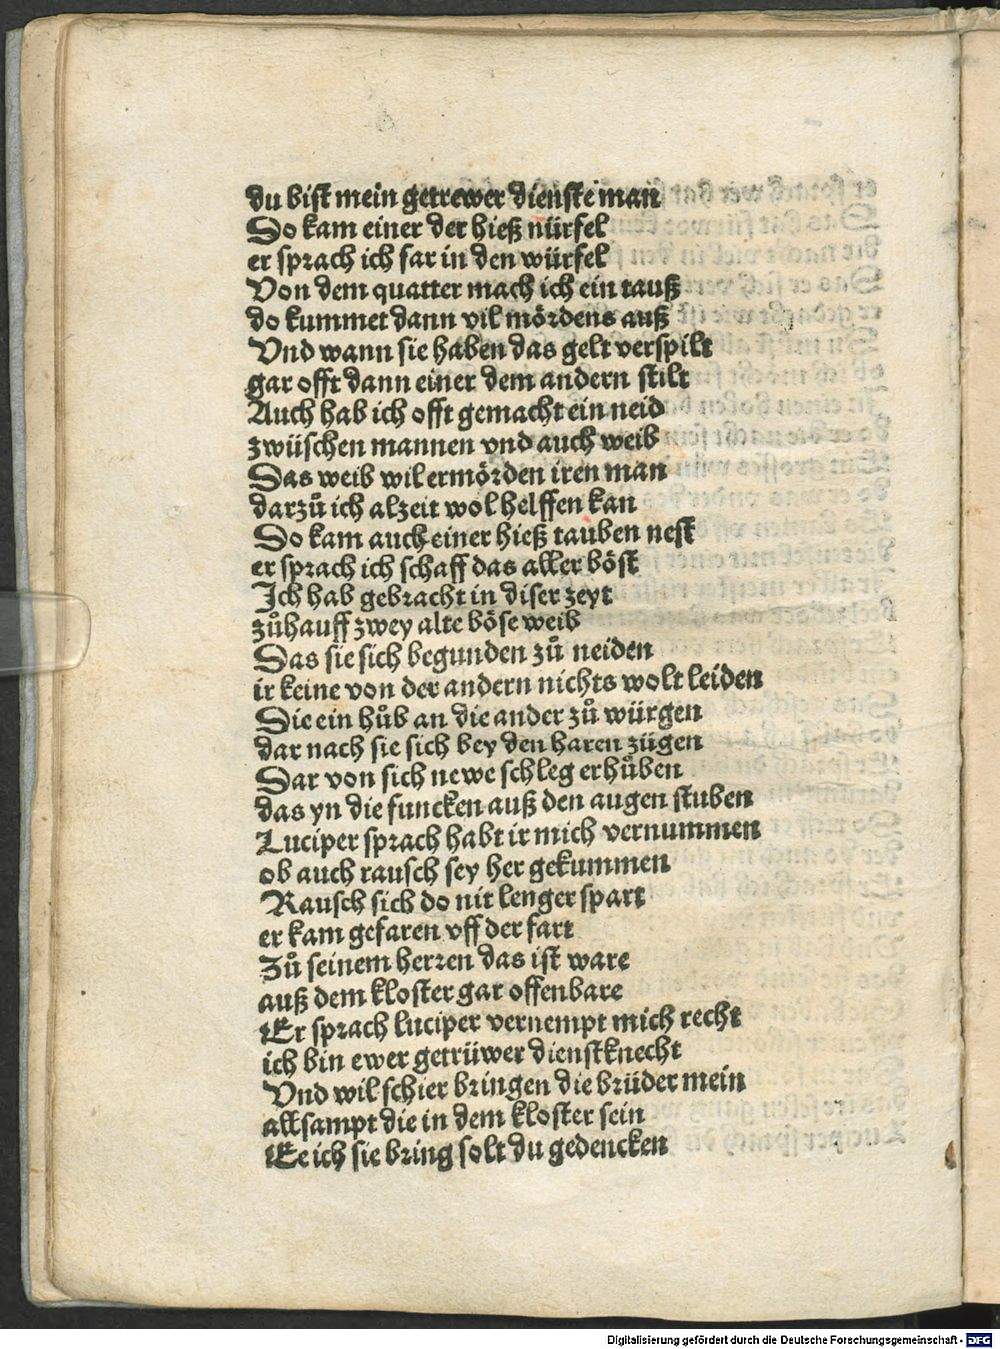 du bist mein getrewer dienste man
So kam einer der hieß nürfel
er sprach ich far in den würfel
Von dem quatter mach ich ein tauß
do kummet dann vil mördens auß
Vnd wann sie haben das gelt verspilt
gar offt dann einer dem andern stilt
Auch hab ich offt gemacht ein neid
zwüschen mannen vnd auch weib
Das weib wil ermörden iren man
darzů ich alzeit wol helffen kan
So kam auch einer hieß tauben nest
er sprach ich schaff das aller böst
Ich hab gebracht in diser zeyt
zůhauff zwey alte böse weib
Das sie sich begunden zů neiden
ir keine von der andern nichts wolt leiden
Die ein hůb an die ander zů würgen
dar nach sie sich bey den haren zügen
Dar von sich newe schleg erhůben
das yn die funcken auß den augen stuben
Luciper sprach habt ir mich vernummen
ob auch rausch sey her gekummen
Rausch sich do nit lenger spart
er kam gefaren vff der fart
Zů seinem herren das ist ware
auß dem kloster gar offenbare
Er sprach luciper vernempt mich recht
ich bin ewer getrüwer dienstknecht
Vnd wil schier bringen die brüder mein
allsampt die in dem kloster sein
Ee ich sie bring solt du gedencken
Digitalisierung gefördert durch die Deutsche Forschungsgemeinschaft - DFG